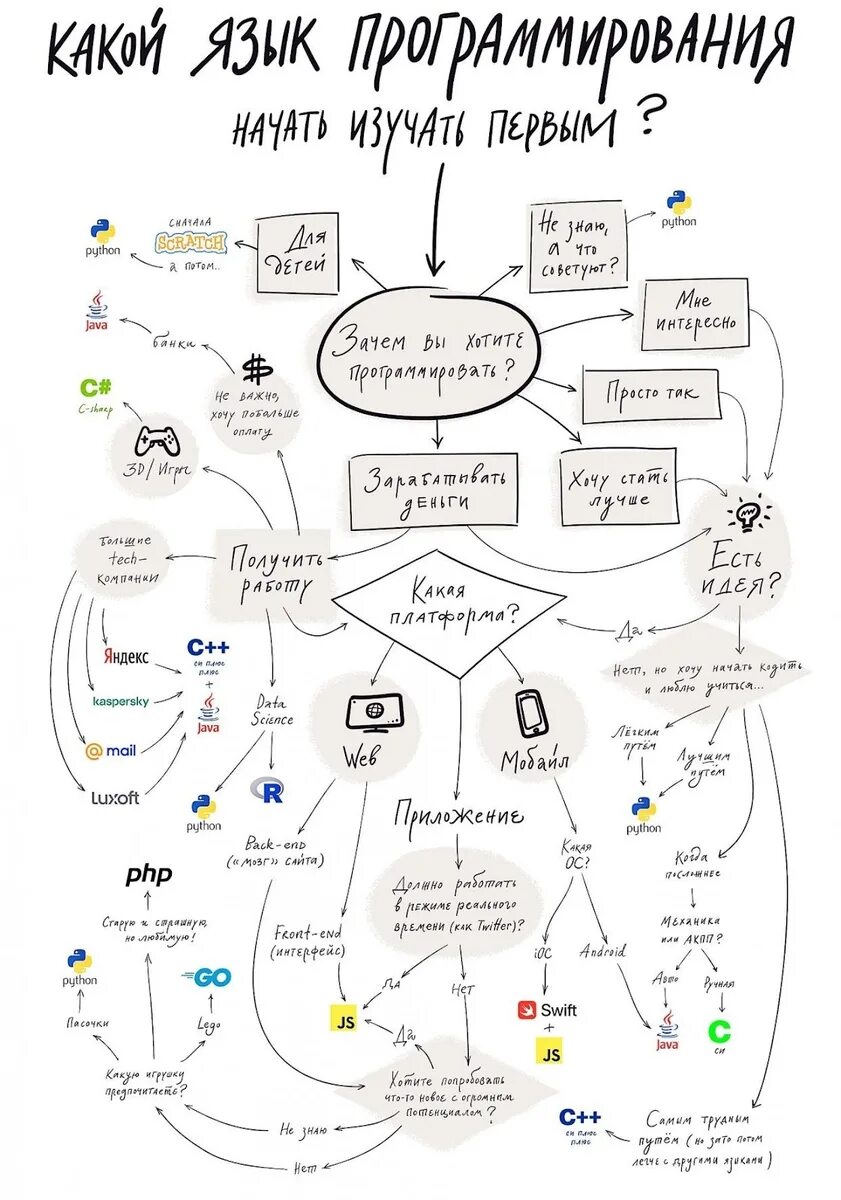 КАКОЙ ЯЗЫК ПРОГРАММИРОВАНИЯ
НАЧАТЬ ИЗУЧАТЬ ПЕРВЫМ?
Для
детей
сначала
SCRATCH
а потом..
python
Не знаю,
а что
советуют?
python
Зачем вы хотите
программировать?
Мне
интересно
Просто так
Хочу стать
лучше
Зарабатывать
деньги
Java
банки
$
Не важно,
хочу побольше
оплату
C#
C-sharp
3D/Игры
Получить
работу
Большие
tech-
компании
Яндекс
kaspersky
@mail
Luxoft
C++
си плюс
плюс
+
Java
Data
Science
python
R
Есть
идея?
Да
Нет, но хочу начать кодить
и люблю учиться...
Лёгким
путём
Лучшим
путём
python
Когда
посложнее
Механика
или АКПП?
Авто
Ручная
Java
C
си
Самим трудным
путём (но зато потом
легче с другими языками)
C++
си плюс
плюс
Какая
платформа?
Web
Мобайл
Приложение
Back-end
("мозг" сайта)
Front-end
(интерфейс)
Должно работать
в режиме реального
времени (как Twitter)?
Да
Нет
JS
Да
Какая
ОС?
iОС
Android
Swift
+
JS
Хотите попробовать
что-то новое с огромным
потенциалом?
Не знаю
Нет
Какую игрушку
предпочитаете?
Пасочки
python
Старую и страшную,
но любимую!
php
Lego
GO